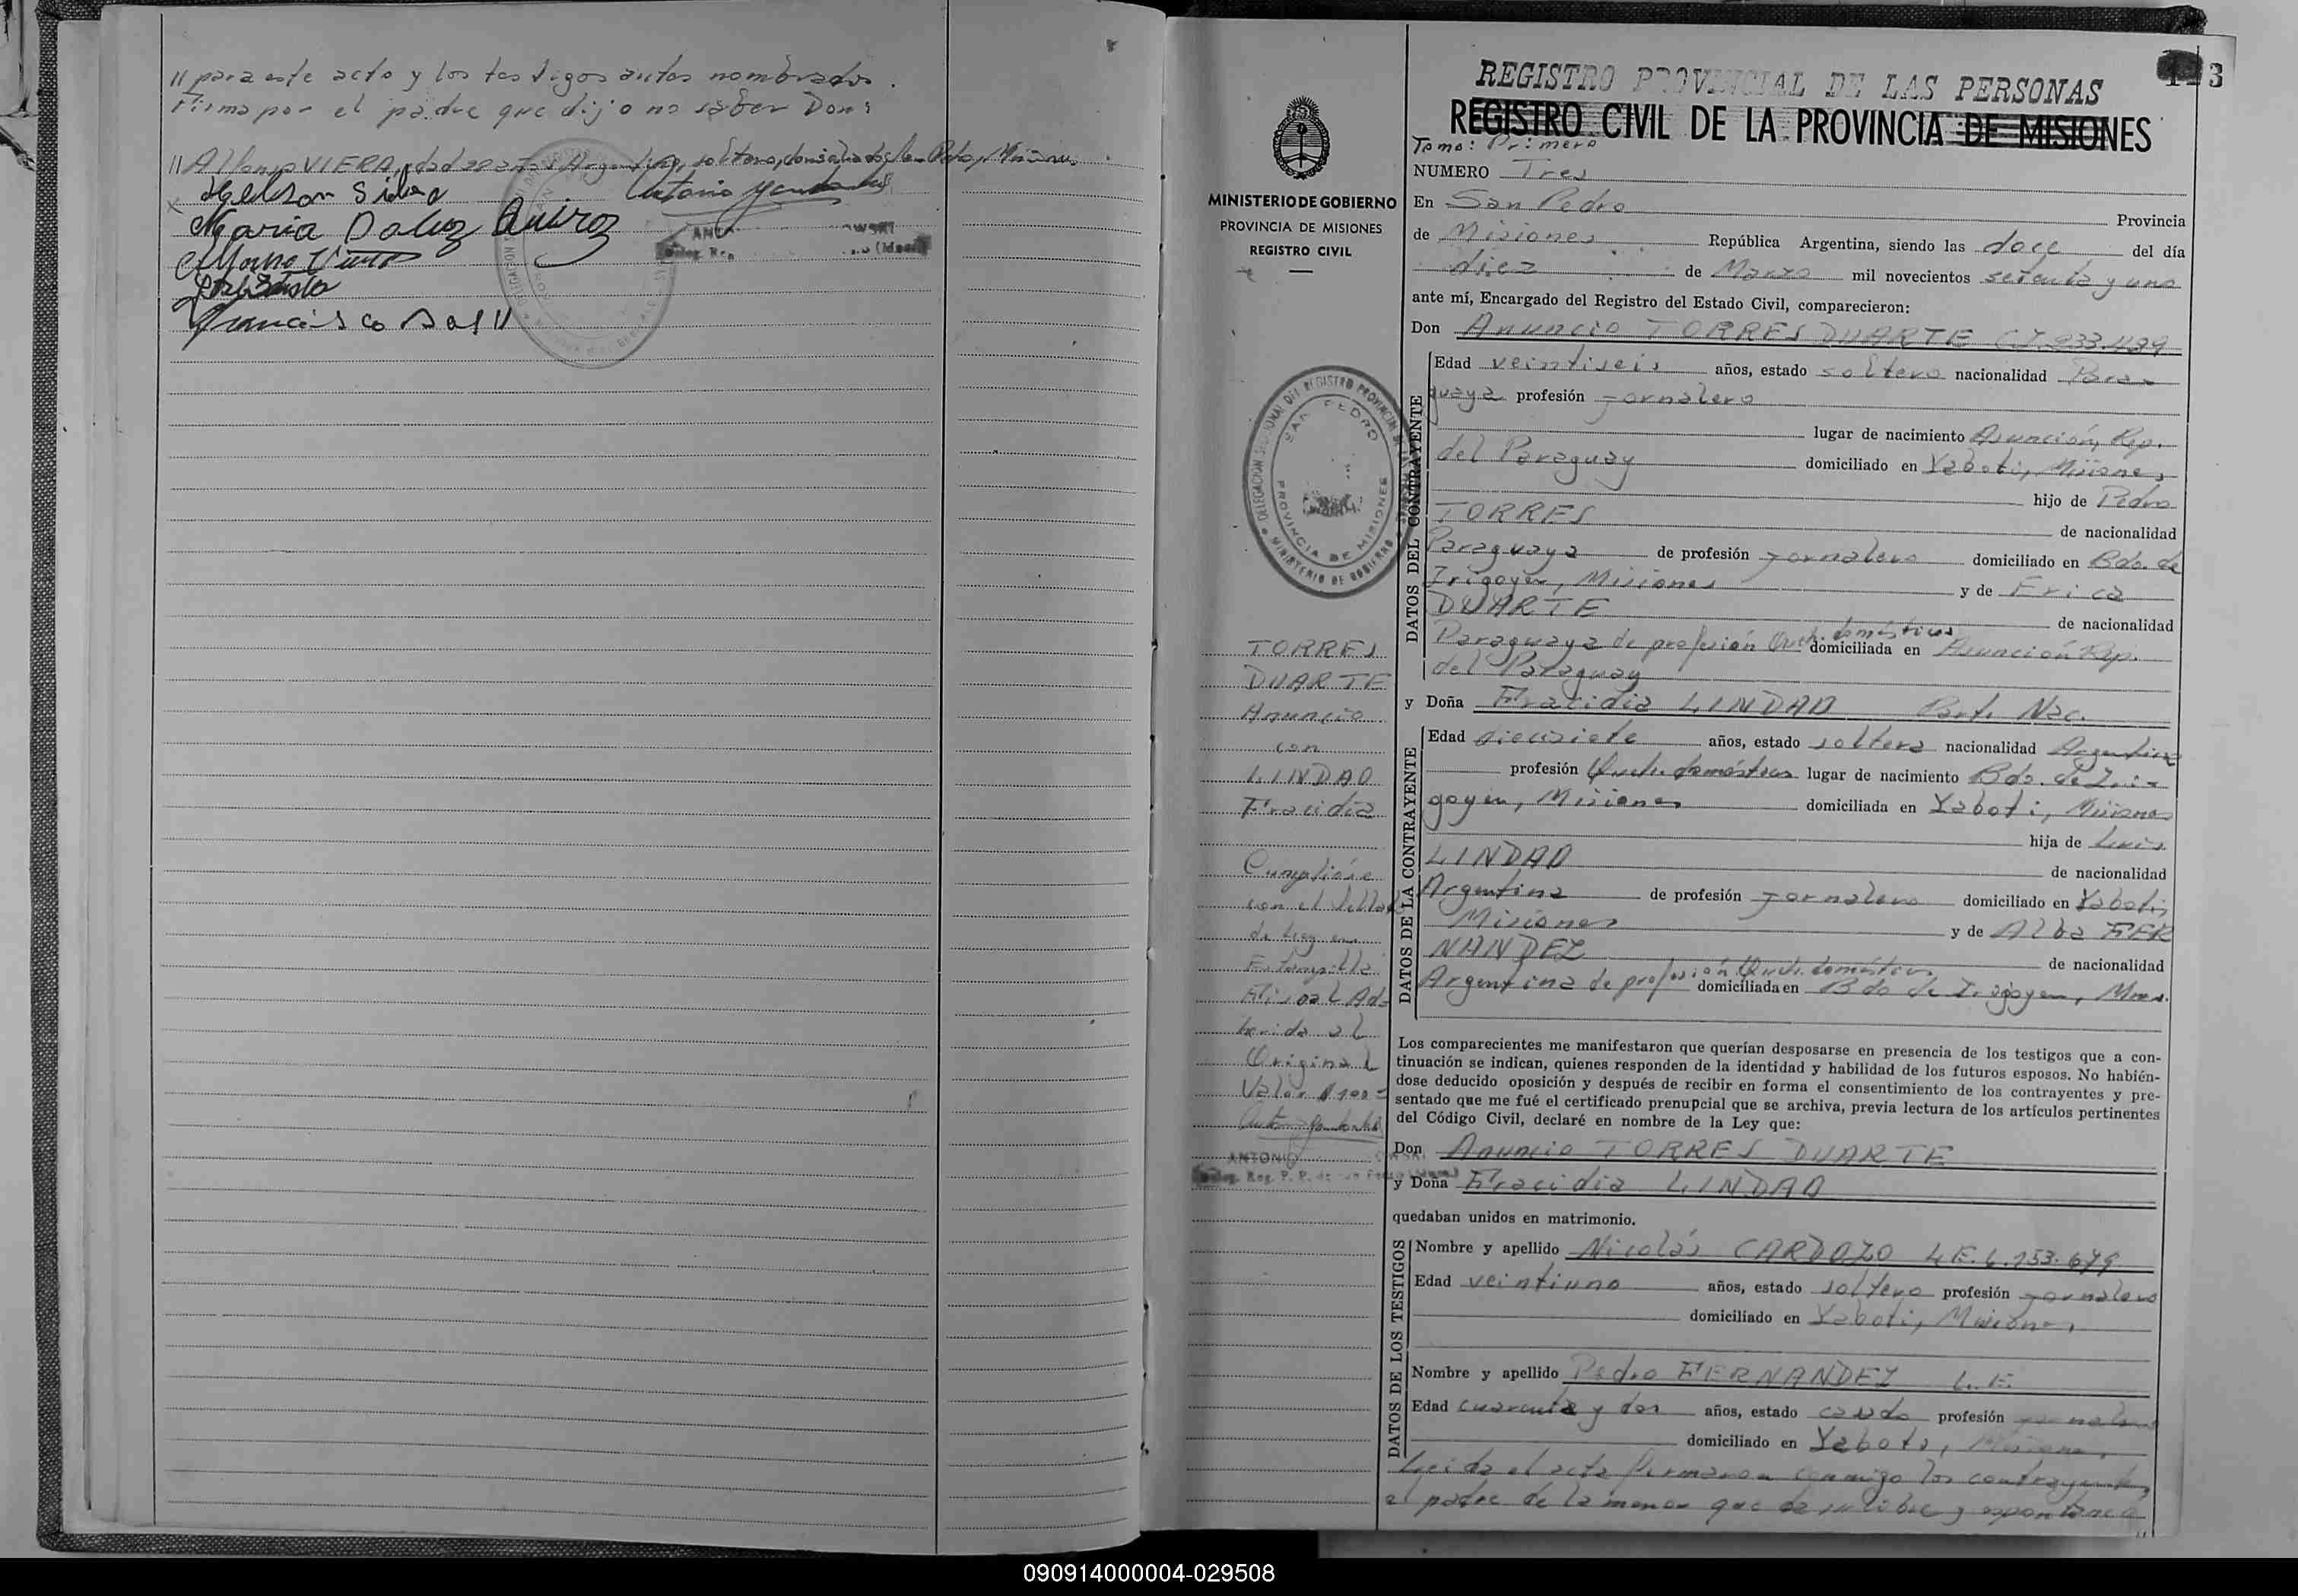 // para este acto y los testigos antes nombrados.
Firma por el padre que dijo no saber Don:
// Alfonso VIERA, edad años, Argentino, soltero, domiciliado San Pedro, Misiones
Nelson Silva
Maria Daluz Quiroz
Francisco Sosa
REGISTRO PROVINCIAL DE LAS PERSONAS
3
REGISTRO CIVIL DE LA PROVINCIA DE MISIONES
Tomo: Primero
MINISTERIO DE GOBIERNO
PROVINCIA DE MISIONES
REGISTRO CIVIL
NUMERO Tres
En San Pedro Provincia
de Misiones República Argentina, siendo las doce del día
diez de Marzo mil novecientos setenta y uno
ante mí, Encargado del Registro del Estado Civil, comparecieron:
Don Anuncio TORRES DUARTE C.I. 233.499
DATOS DEL CONTRAYENTE
Edad veintiseis años, estado soltero nacionalidad Para-
guaya profesión jornalero
lugar de nacimiento Asunción, Rep.
del Paraguay domiciliado en Yaboti, Misiones,
hijo de Pedro
TORRES de nacionalidad
Paraguaya de profesión jornalero domiciliado en Bdo. de
Irigoyen, Misiones y de Erica
DUARTE de nacionalidad
Paraguaya de profesión Queh. domésticos domiciliada en Asunción Rep.
del Paraguay
y Doña Fracidia LINDAO Part. Nac.
DATOS DE LA CONTRAYENTE
Edad diecisiete años, estado soltera nacionalidad Argentina
profesión Queh. domésticos lugar de nacimiento Bdo. de Iri-
goyen, Misiones domiciliada en Yaboti, Misiones
hija de Luis
LINDAO de nacionalidad
Argentina de profesión jornalero domiciliado en Yaboti,
Misiones y de Alba FER
NANDEZ de nacionalidad
Argentina de profesión Queh. domésticos domiciliada en Bdo de Irigoyen, Mnes.
Los comparecientes me manifestaron que querían desposarse en presencia de los testigos que a con-
tinuación se indican, quienes responden de la identidad y habilidad de los futuros esposos. No habién-
dose deducido oposición y después de recibir en forma el consentimiento de los contrayentes y pre-
sentado que me fué el certificado prenupcial que se archiva, previa lectura de los artículos pertinentes
del Código Civil, declaré en nombre de la Ley que:
Don Anuncio TORRES DUARTE
y Doña Fracidia LINDAO
quedaban unidos en matrimonio.
DATOS DE LOS TESTIGOS
Nombre y apellido Nicolás CARDOZO L.E. 6.153.679
Edad veintiuno años, estado soltero profesión jornalero
domiciliado en Yaboti, Misiones,
Nombre y apellido Pedro FERNANDEZ L.E.
Edad cuarenta y dos años, estado casado profesión jornalero
domiciliado en Yaboti, Misiones,
Leida el acta firmaron conmigo los contrayentes,
el padre de la menor que da su libre y espontanea
//
DELEGACION SECCIONAL DEL REGISTRO PROVINCIAL DE LAS
SAN PEDRO
PROVINCIA DE MISIONES
MINISTERIO DE GOBIERNO
TORRES
DUARTE
Anuncio
con
LINDAO
Fracidia
Cumplióse
con el sellado
de Ley en
Estampilla
Fiscal Ad-
herida al
Original
Valor $ 100-
ANTONIO
090914000004-029508